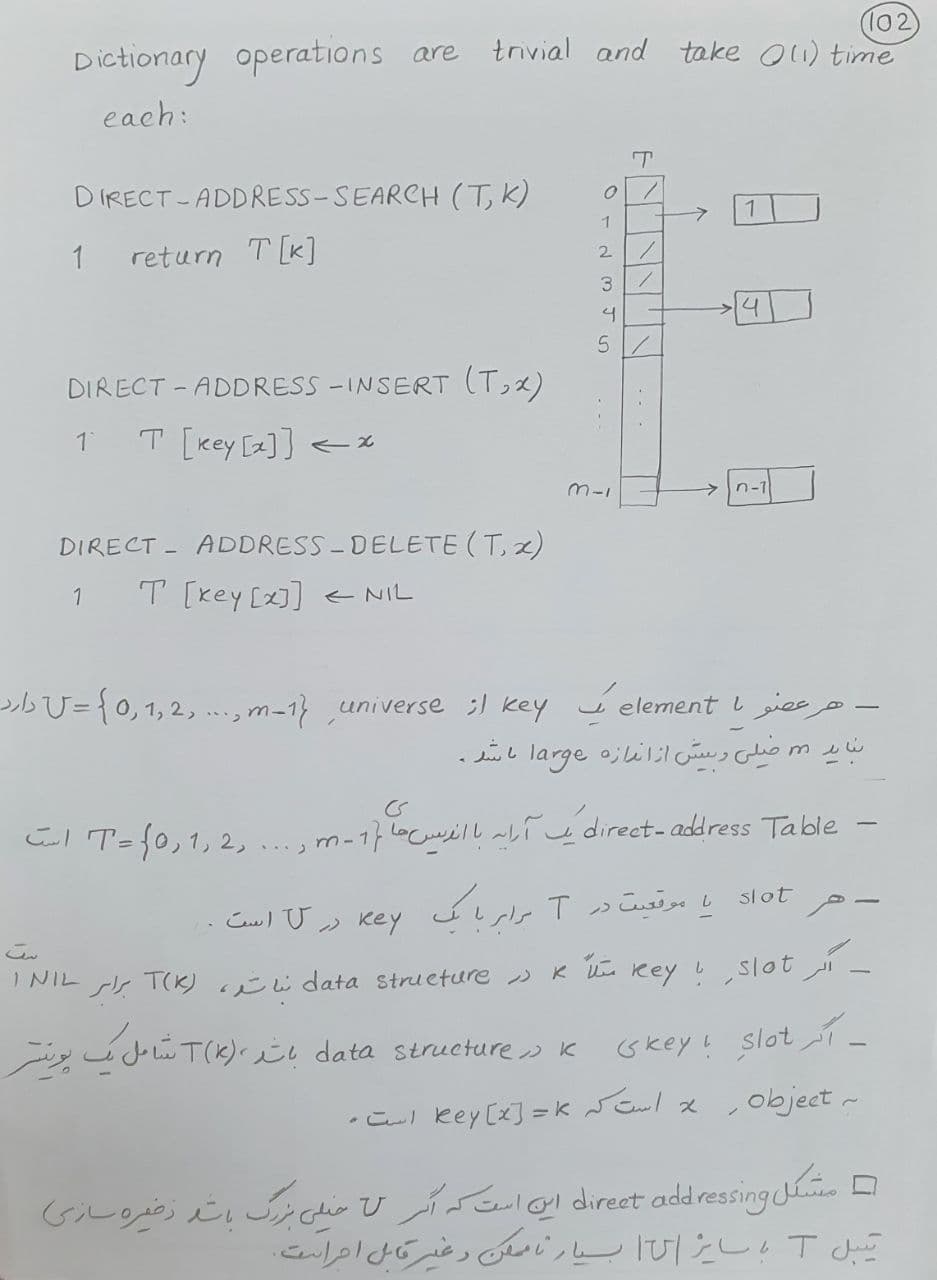 102
Dictionary operations are trivial and take O(1) time
each:
DIRECT-ADDRESS-SEARCH (T, K)
1 return T[K]
DIRECT-ADDRESS-INSERT (T, x)
1 T [key[x]] ← x
DIRECT-ADDRESS-DELETE (T, x)
1 T [key[x]] ← NIL
T
0 /
1 → 1
2 /
3 /
4 → 4
5 /
⋮ ⋮
m-1 → n-1
— هر عضو یا element یک key از universe, U={0, 1, 2, ..., m-1} دارد
نباید m خیلی و بیش از اندازه large باشد.
— direct-address Table یک آرایه با اندیس‌های T={0, 1, 2, ..., m-1} است
— هر slot یا موقعیت در T برابر با یک key در U است.
— اگر slot, با key مثلاً K در data structure نباشد، T(K) برابر NIL است
— اگر slotِ با key ی K در data structure باشد، T(K) شامل یک پوینتر
~ object, x است که key[x]=K است.
□ مشکل direct addressing این است که اگر U خیلی بزرگ باشد ذخیره سازی
تیبل T با سایز |U| بسیار ناممکن و غیر قابل اجراست.